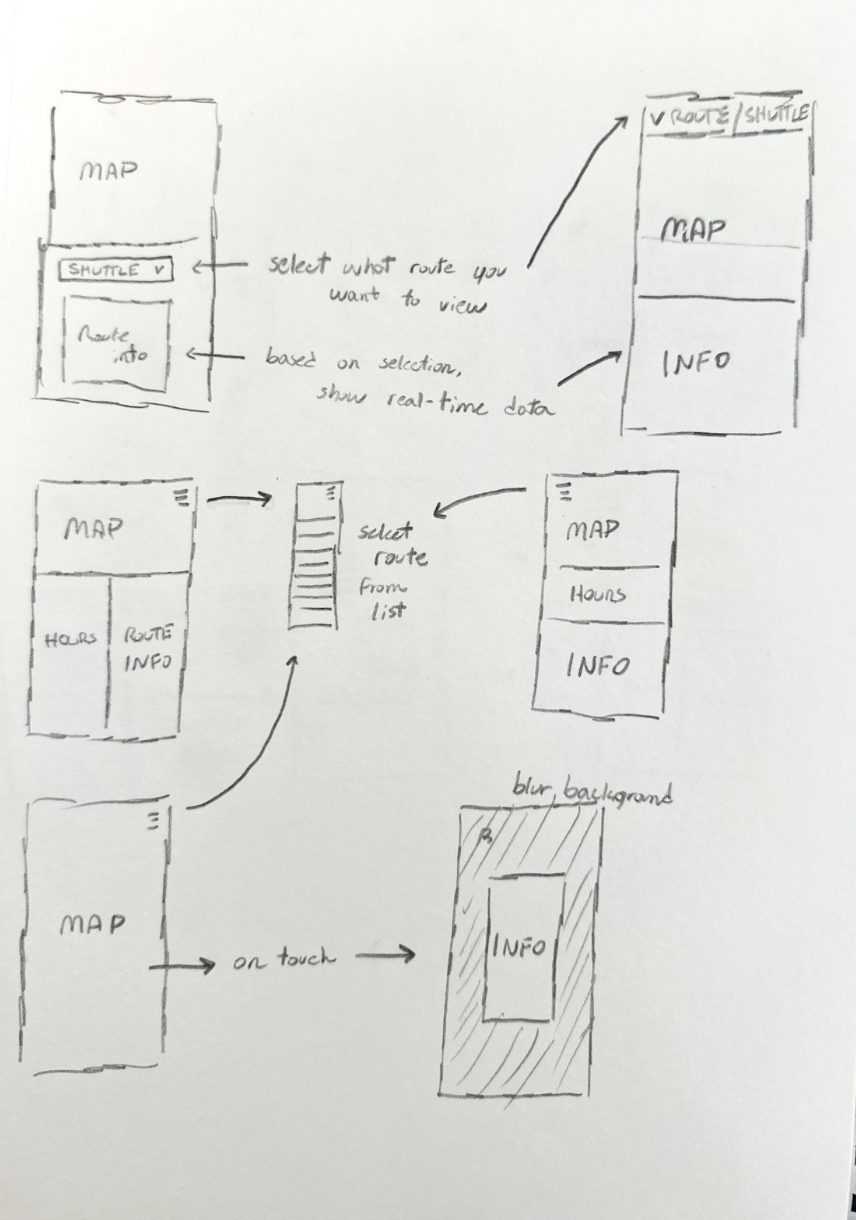 MAP
SHUTTLE v
Route
info
select what route you
want to view
based on selection,
show real-time data
v ROUTE/SHUTTLE
MAP
INFO
MAP
HOURS
ROUTE
INFO
select
route
from
list
MAP
HOURS
INFO
MAP
on touch
blur background
INFO